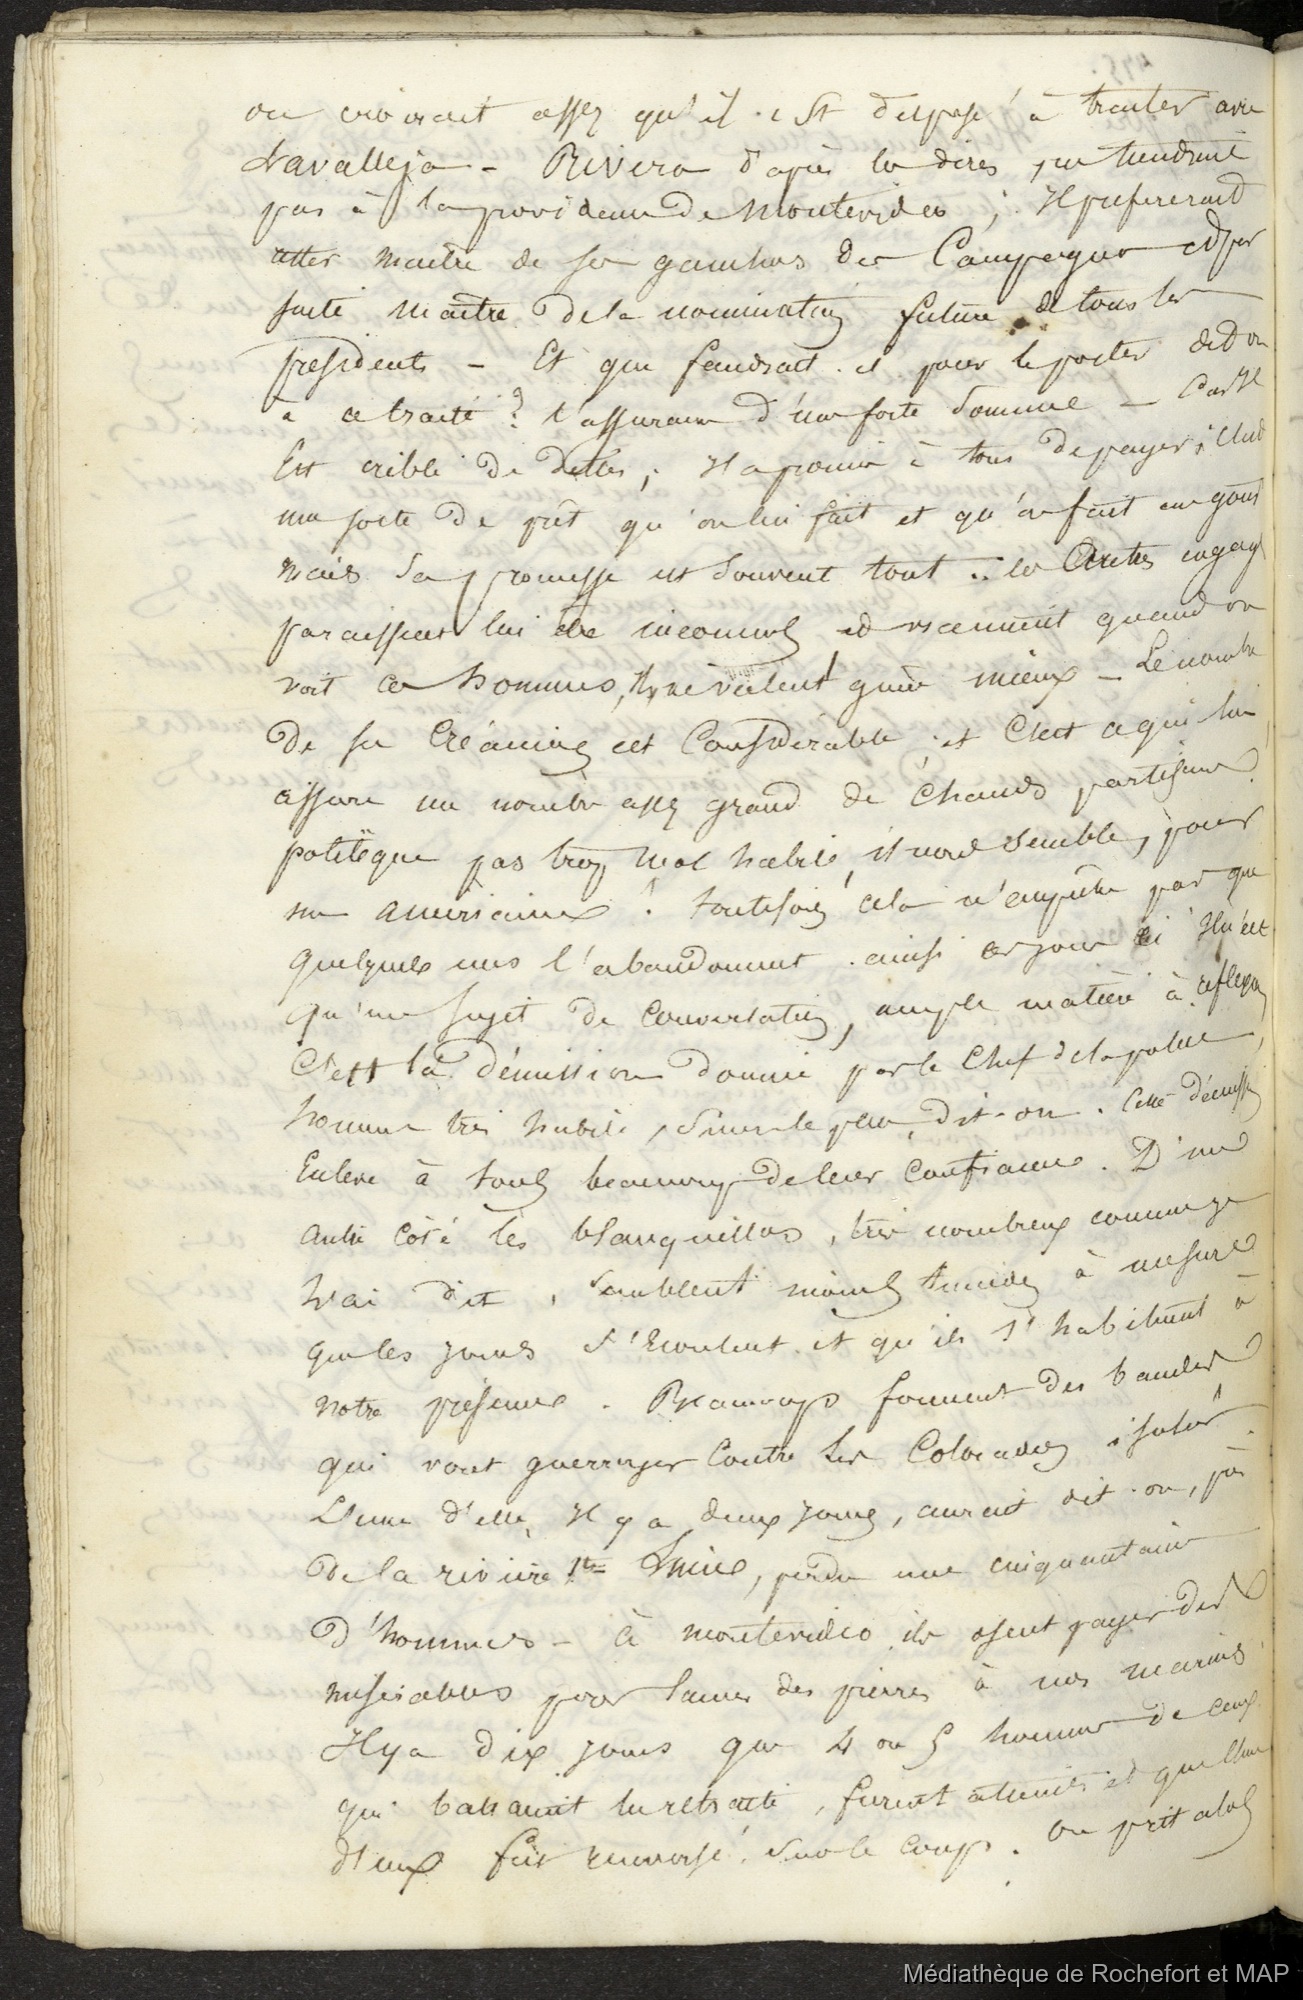 on croirait assez qu'il est disposé à traiter avec
Lavalleja - Rivera d'après les dires, ne tiendrait
pas à la présidence de Montevideo ; Il préfererait
être maitre de ses gauchos des Campagnes et par
suite maître de la nomination future de tous les
présidents - Et que faudrait-il pour le porter dit on
à ce traité ? l'assurance d'une forte somme - Car Il
Est criblé de dettes ; Il a promis à tous de payer ; C'est
une sorte de prêt qu'on lui fait et qu'on fait
mais sa promesse est souvent tout .. les autres
paraissent lui être inconnus et vraiment quand on
voit ces hommes, Ils ne valent guère mieux - Le nombre
de ses Créanciers est Considérable et C'est ce qui lui
assure un nombre assez grand de chauds partisans
politique pas trop mal habile, il nous semble, pour
un américain ! toutefois cela n'empêche pas que
quelques uns l'abandonnent . ainsi ces jours ci Il n'est
qu'un sujet de Conversation, ample matière à reflexion
C'est la démission donnée par le Chef de la police,
homme très habile, dit-on . Cette démission
Enlève à tous beaucoup de leur Confiance . D'un
autre côté les blanquillos, très nombreux comme je
l'ai dit, semblent moins timides à mesure
que les jours s'écoulent et qu'ils s'habituent à
notre présence . Beaucoup forment des bandes
qui vont guerroyer Contre les Colorados isolés .
L'une d'elle, Il y a deux jours, aurait dit-on, près
de la rivière Ste Lucie, perdu une cinquantaine
d'hommes - à Montevideo ils osent payer des
misérables pour lancer des pierres à nos marins
Il y a dix jours que 4 ou 5 hommes de ceux
qui battaient la retraite, furent atteints et que l'un
d'eux fut renversé sur le coup . On prit alors
Médiathèque de Rochefort et MAP